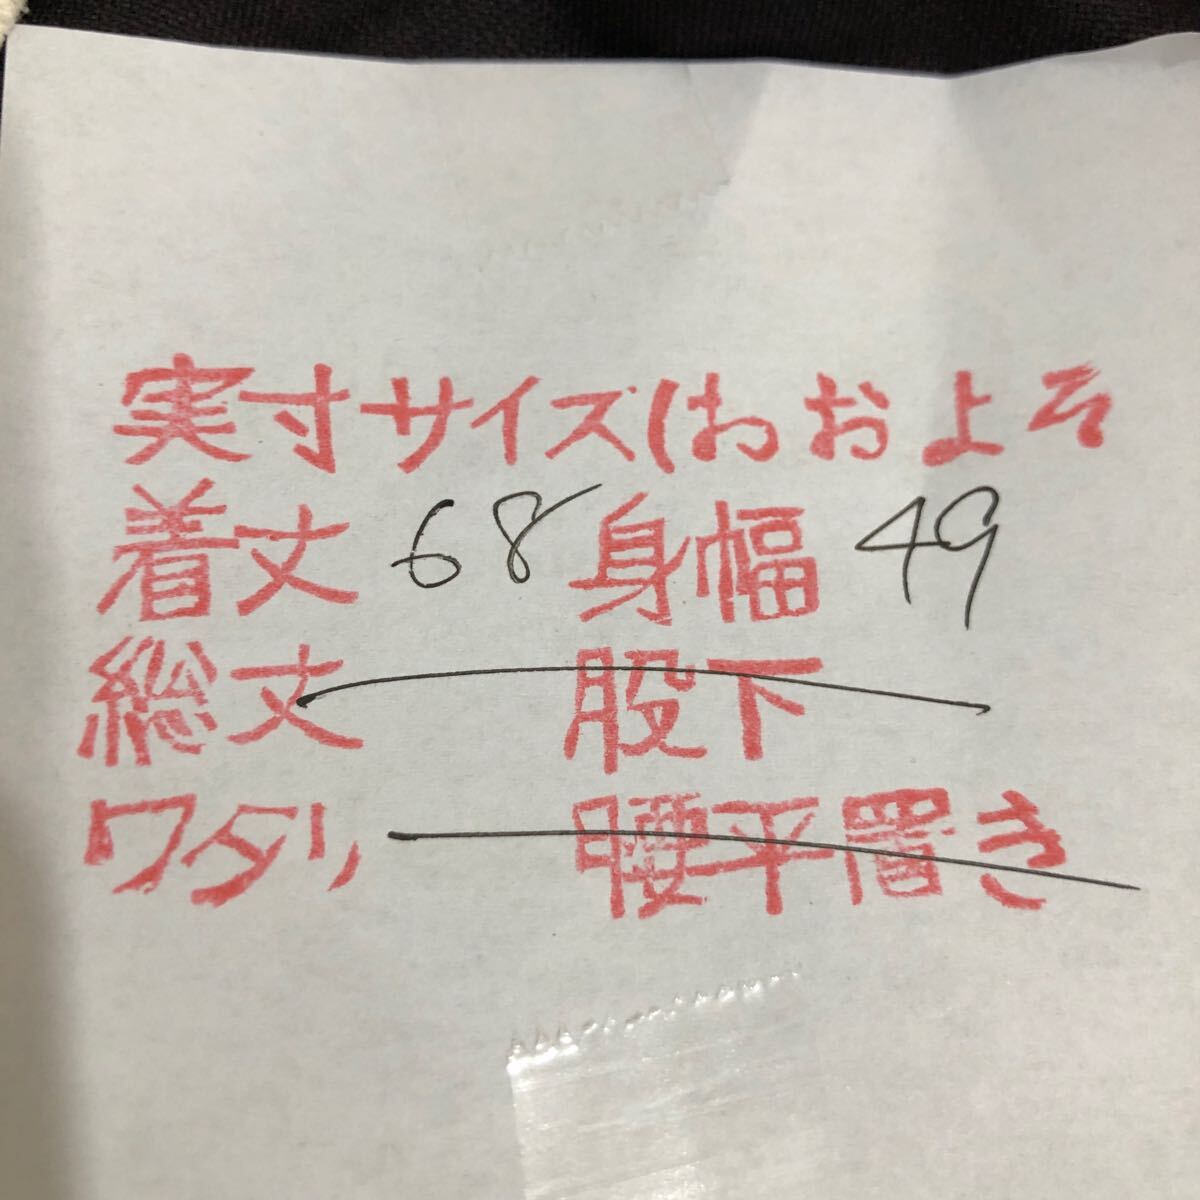 実寸サイズ(おおよそ
着丈 68 身幅 49
総丈 股下
ワタリ 腰平置き